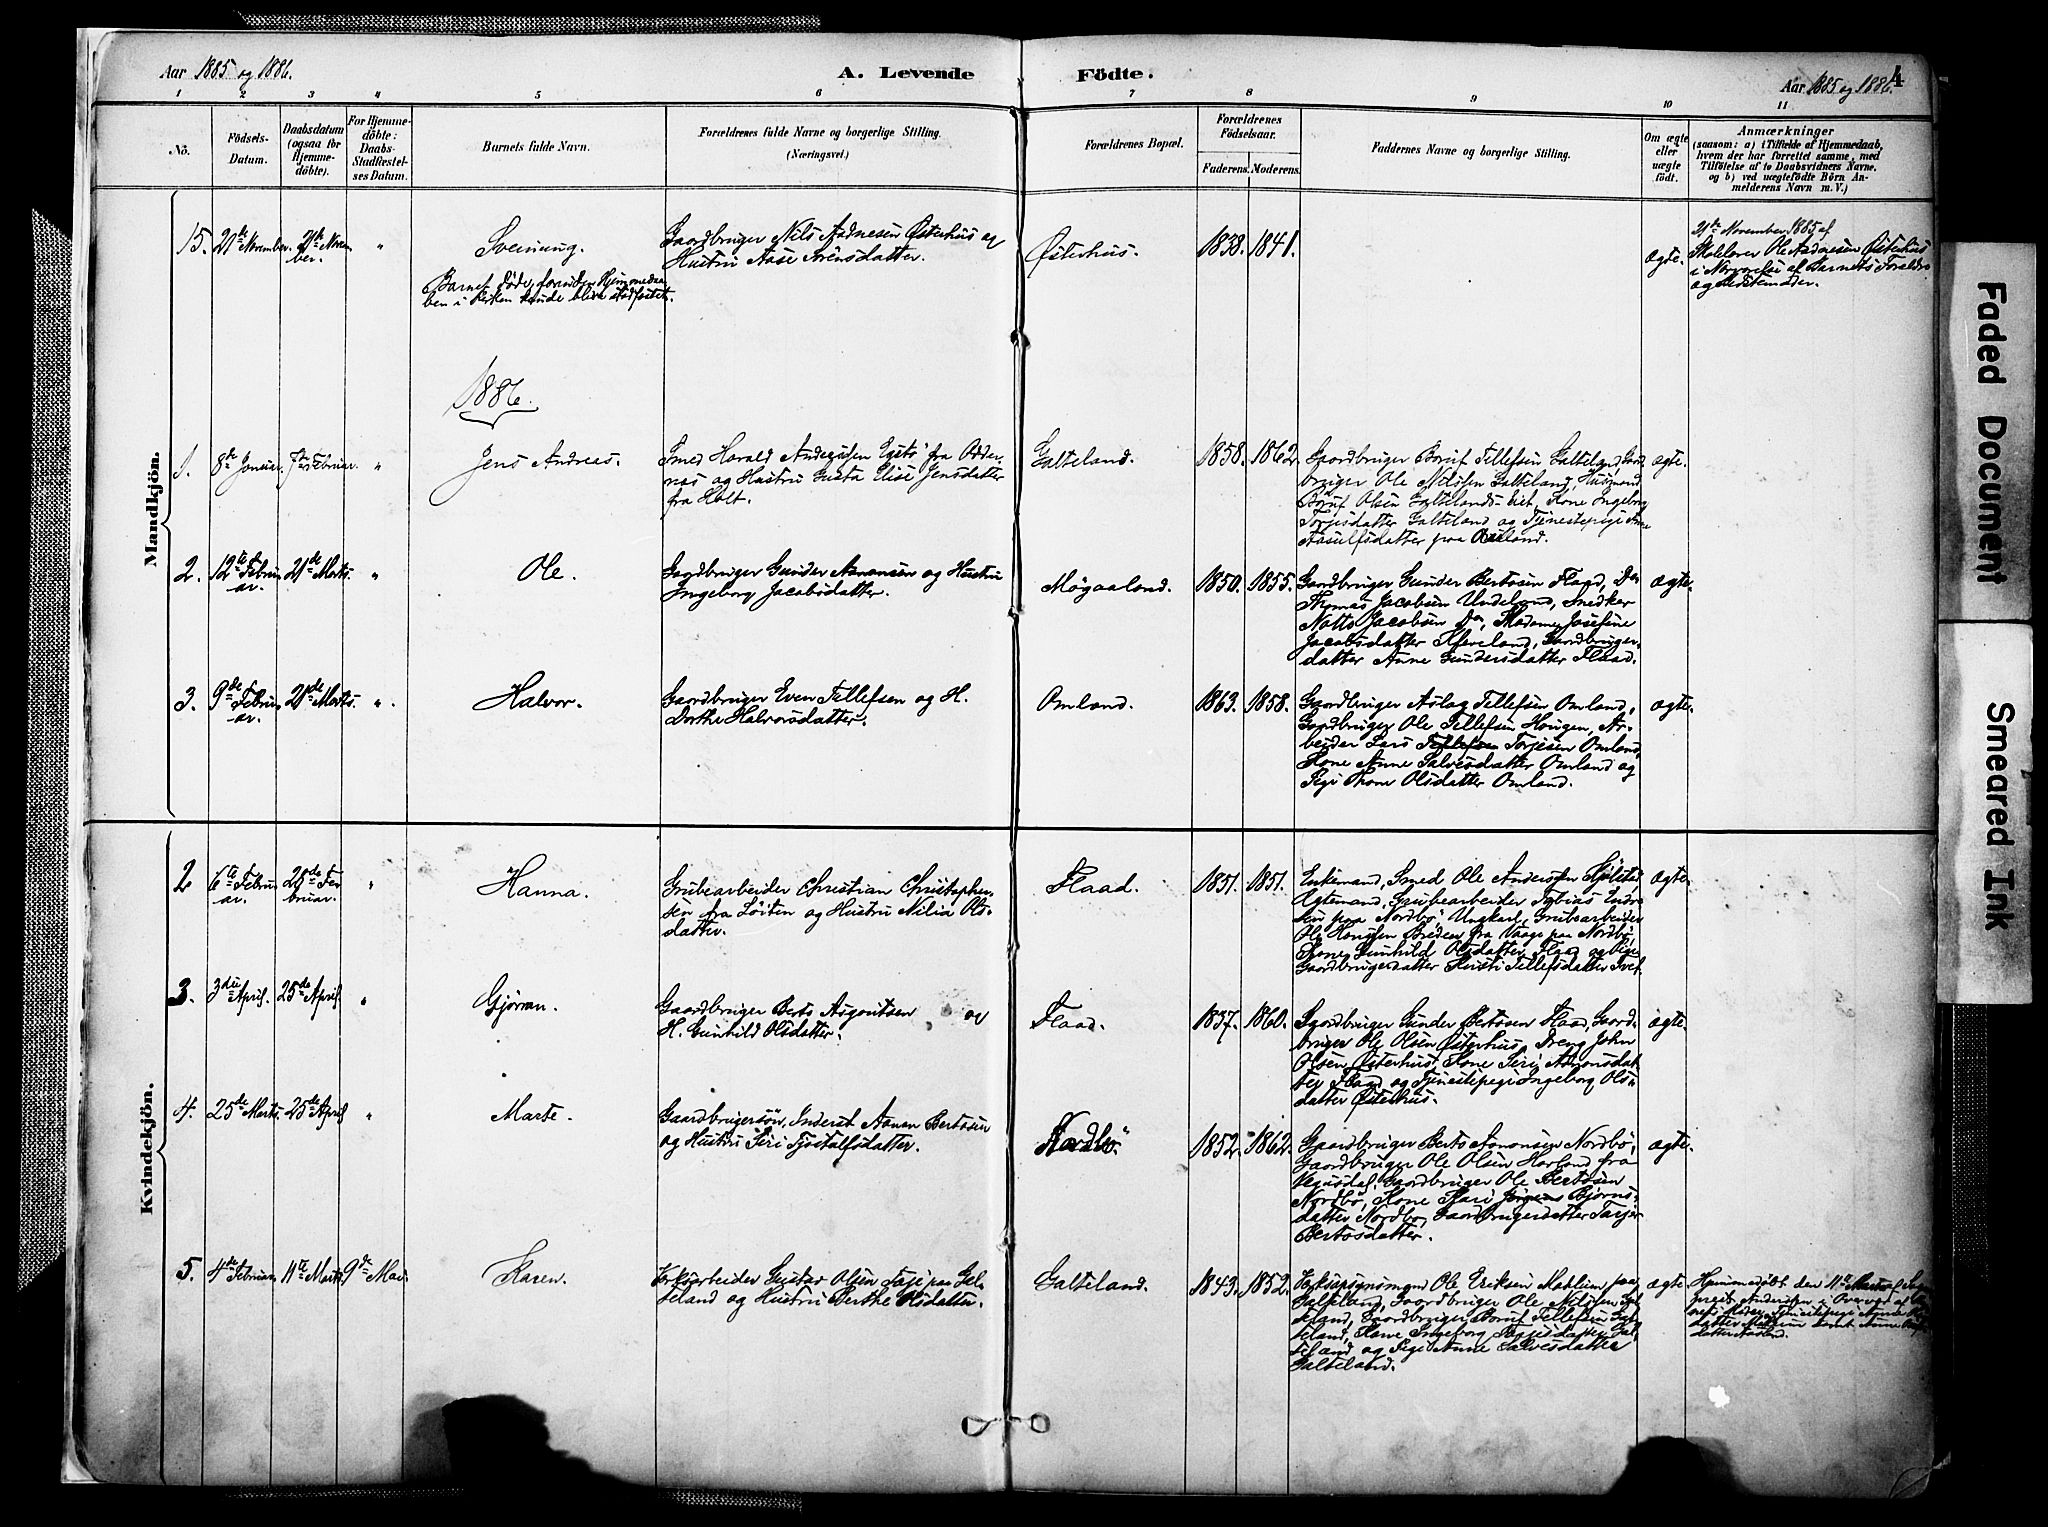 Aar 1885 og 1886.
A. Levende Födte.
Aar 1885 og 1886.
4
1 2 3 4 5 6 7 8 9 10 11
Nô.
Födsels-Datum.
Daabsdatum (ogsaa for Hjemmedöbte).
For Hjemmedöbte: Daabs-Stadfæstelses Datum.
Barnets fulde Navn.
Forældrenes fulde Navne og borgerlige Stilling.
(Næringsvei.)
Forældrenes Bopæl.
Forældrenes Födselsaar.
Faderens. Moderens.
Faddernes Navne og borgerlige Stilling.
Om ægte eller uægte födt.
Anmærkninger
(saasom: a) i Tilfælde af Hjemmedaab,
hvem der har forrettet samme, med
Tilföielse af to Daabsvidners Navne.
og b) ved uægtefödte Börn Anmelderens Navn m. V.)
Mandkjön.
15. 21de November. 21de November. "
Sveinung.
Barnet döde, forinden Hjemmedaaben i Kirken kunde blive stadfæstet.
Gaardbruger Nils Aadnesen Østerhus og
Hustru Aase Arensdatter.
Østerhus.
1838. 1841.
ægte.
21de November 1885 af
Ole Aadnesen Østerhus
i Nærværelse af Barnets Forældre
og
1886.
1. 8de Januar. 7de Februar. "
Jens Andreas.
Smed Harald Andersen Egstø fra Oddernæs og Hustru Gusta Elise Jensdatter
fra Holt.
Galteland.
1858. 1862.
Gaardbruger Boruf Tellefsen Galteland, Gaardbruger Ole Nilsen Galteland, Husmand
Boruf Olsen Galtelands-Eiet, Kone Ingeborg
Torjusdatter Galteland og Tjenestepige Anne
Aasulfsdatter paa
ægte.
2. 12te Februar. 21de Marts. "
Ole.
Gaardbruger Gunder Aanonsen og Hustru
Ingeborg Jacobsdatter.
Møgaaland.
1850. 1855.
Gaardbruger Gunder Bertosen Flaad, Do
Thomas Jacobsen Undeland, Snedker
Jacobsen Do, Madame Josefine
Jacobsdatter Kleveland, Gaardbrugerdatter Anne Gundersdatter Flaad.
ægte.
3. 9de Februar. 21de Marts. "
Halvor.
Gaardbruger Even Tellefsen og H.
Dorthe Halvorsdatter.
Omland.
1863. 1858.
Gaardbruger Aslag Tellefsen Omland,
Gaardbruger Ole Tellefsen Hougen, Arbeider Lars Tellefsen Torjesen Omland,
Kone Anne Salvesdatter Omland og
Pige Thone Olsdatter Omland.
ægte.
Kvindekjön.
2 6te Februar. 21de Februar. "
Hanna.
Grubearbeider Christian Christophersen fra Löiten og Hustru Nilia Olsdatter.
Flaad.
1851. 1851.
Enkemand, Smed Ole Andersen
Ægtemand, Grubearbeider Tobias
paa Nordbö Ungkarl, Grubearbeider
Ole Hansen Breden fra Vaage paa Nordbö,
Kone Gunhild Olsdatter Flaad og Pige
Gaardbrugerdatter Kirsti Tellefsdatter Tveit.
ægte.
3. 3die April. 25de April. "
Gjörran.
Gaardbruger Berto Asgoutsen og
H. Gunhild Olsdatter.
Flaad.
1857. 1860.
Gaardbruger Gunder Bertosen Flaad, Gaardbruger Ole Olsen Østerhus, Dreng John
Olsen Østerhus, Kone Siri Aanonsdatter Flaad og Tjenestepige Ingeborg Olsdatter Østerhus.
ægte.
4. 25de Marts. 25de April "
Marte.
Gaardbrugersön, Inderst Aanon Bertosen
og Hustru Siri Tjöstolfsdatter.
Nordbö.
1852. 1862.
Gaardbruger Berto Aanonsen Nordbö,
Gaardbruger Ole Olsen Hovland fra
Vegusdal, Gaardbruger Ole Bertosen
Nordbö, Kone Kari Björnsdatter Nordbö, Gaardbrugerdatter Torjer
Bertosdatter.
ægte.
5. 4de Februar. 11te Marts. 9de Mai.
Karen.
Værksarbeider Gustav Olsen Faje paa Galteland og Hustru Berthe Olsdatter.
Galteland.
1843. 1852.
Ole Eriksen Mæhlum paa
Galteland, Gaardbruger Ole Nilsen Galteland, Gaardbruger Boruf Tellefsen Galteland, Kone Ingeborg Torjusdatter Galteland og Pige Anne Salvesdatter
Galteland.
ægte.
Hjemmedöbt den 11te Marts af
Faded Document
Smeared Ink